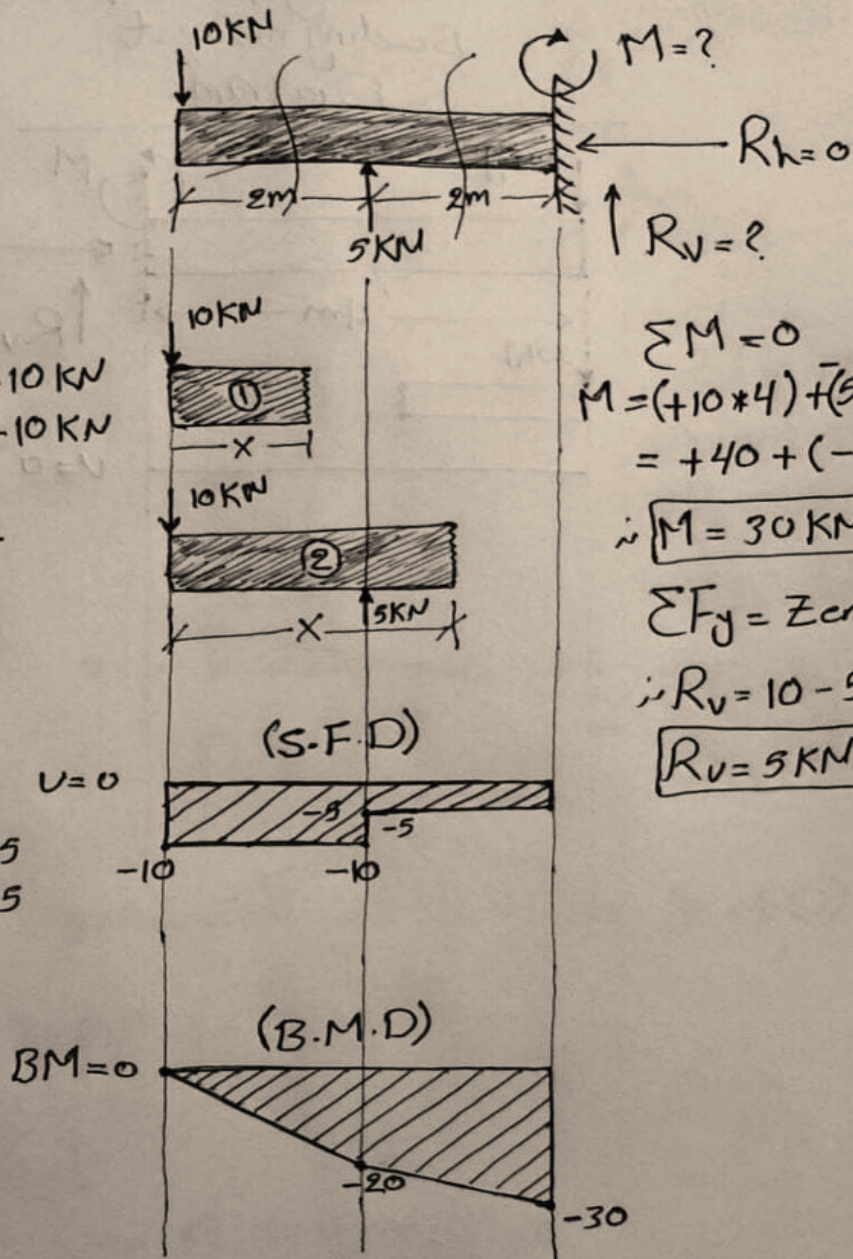 10KN
M=?
Rh=0
2m
2m
5KN
Rv=?
10KN
ΣM=0
10 KN
-10 KN
①
x
M=(+10*4)+(5
= +40 + (-
10KN
∴ M = 30 KN
②
5KN
x
ΣFy = Zer
∴ Rv = 10 - 5
Rv = 5 KN
(S.F.D)
U=0
-5
-5
5
5
-10
-10
(B.M.D)
BM=0
-20
-30